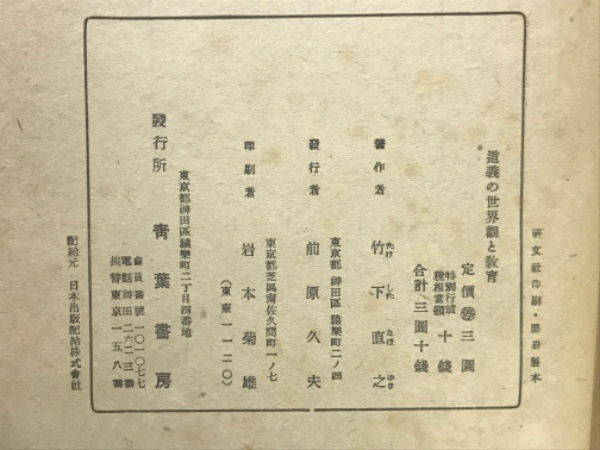 研文社印刷・黒岩製本
道義の世界觀と教育
定價㊞三圓
特別行爲
稅相當額 十錢
合計三圓十錢
著作者 竹下直之
たけ した なほ ゆき
東京都神田區猿樂町二ノ四
發行者 前原久夫
東京都芝區南佐久間町一ノ七
印刷者 岩本菊雄
(東東一一二〇)
東京都神田區猿樂町二丁目四番地
發行所 靑葉書房
會員番號一〇一〇七七
電話神田二六二三番
振替東京一五八番
配給元 日本出版配給株式會社